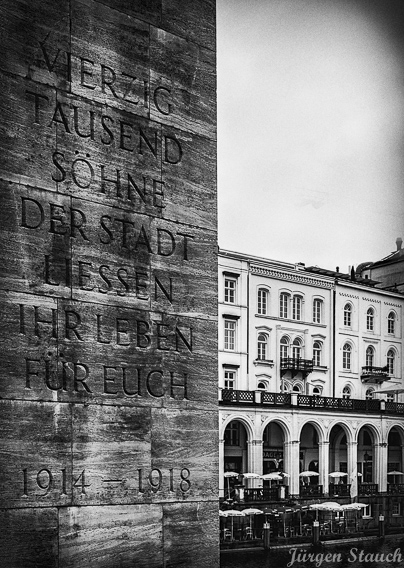 VIERZIG
TAUSEND
SÖHNE
DER STADT
LIESSEN
IHR LEBEN
FÜR EUCH
1914 – 1918
Jürgen Stauch